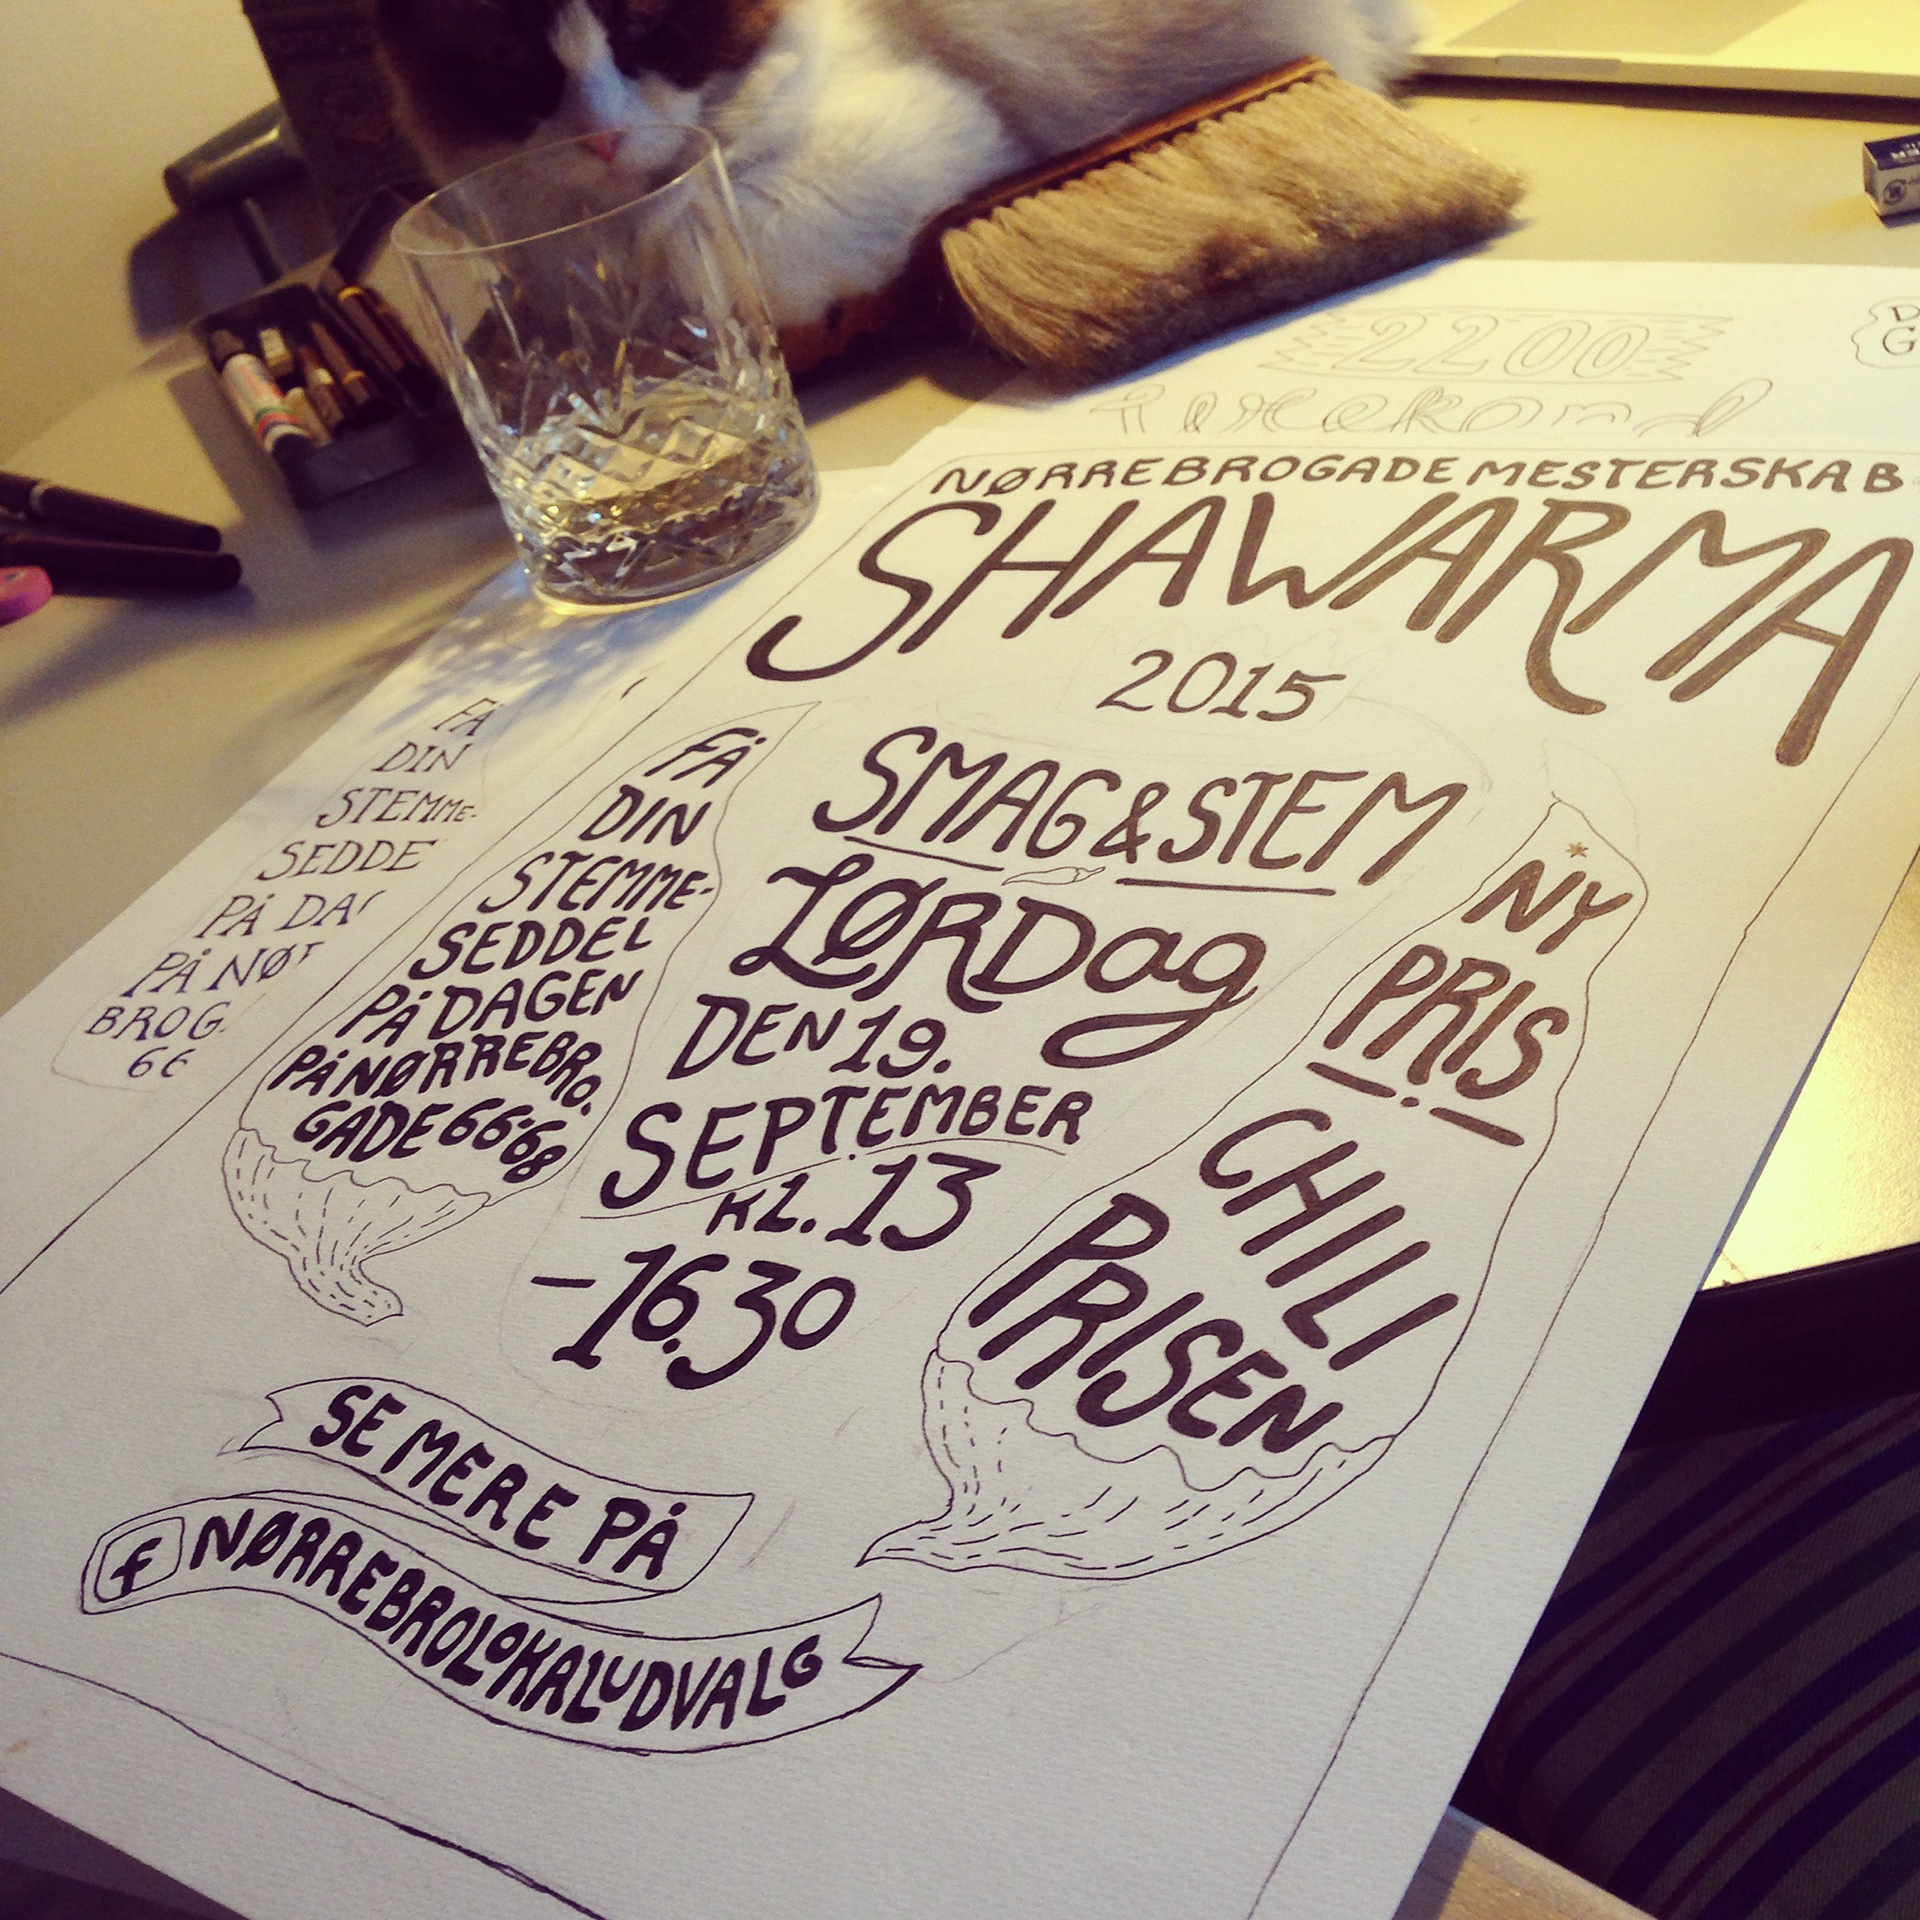 2200
NØRREBROGADE MESTERSKAB
SHAWARMA
2015
SMAG & STEM
LØRDag
DEN 19.
SEPTEMBER
KL. 13
-16.30
FÅ
DIN
STEMME-
SEDDEL
PÅ DAGEN
PÅ NØRREBRO.
GADE 66-68
NY
PRIS
CHILI
PRISEN
SE MERE PÅ
f NØRREBROLOKALUDVALG
FÅ
DIN
STEMME-
SEDDE
PÅ DA
PÅ NØ
BROG.
66
D
G